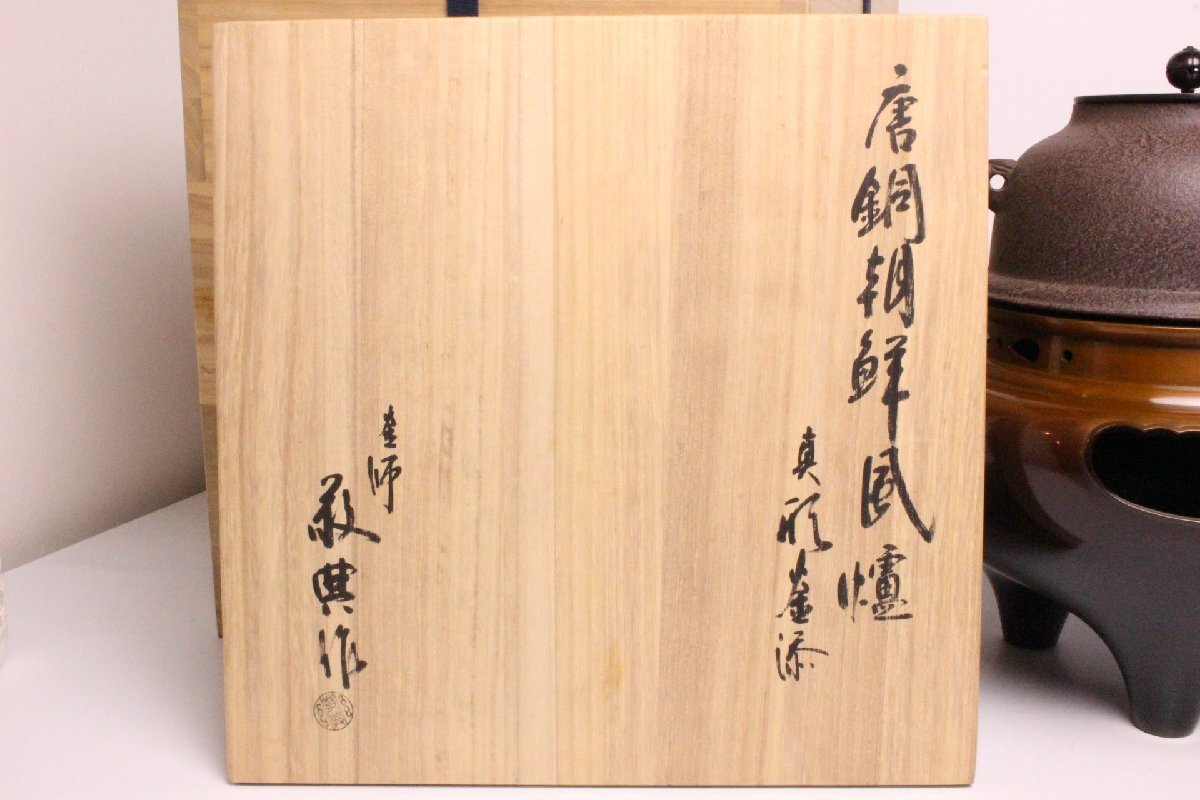 唐銅朝鮮風爐
真形釜添
釜師
敬典作